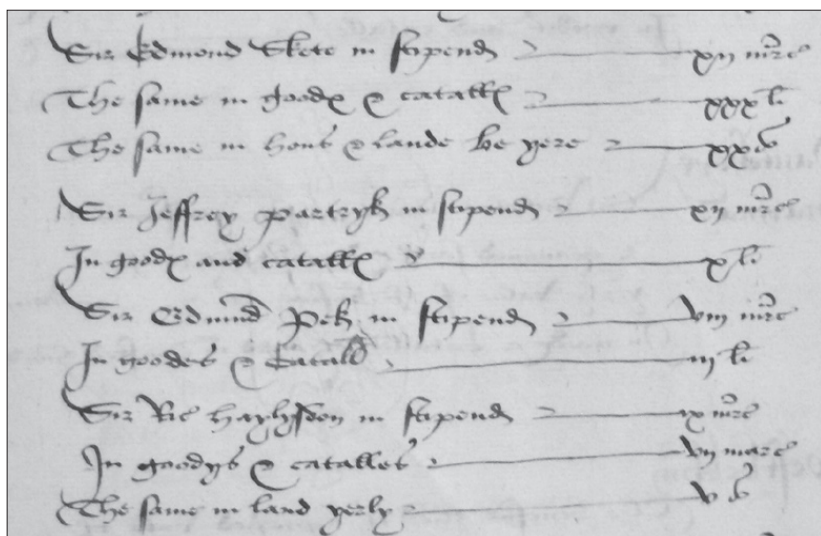 Sir Edmond Skete in stipend xij mrc
The same in good & catall xxx li
The same in hous & lande be yere xx s
Sir Jeffrey Partryk in stipend xij mrc
In good and catall x li
Sir Edmund Pek in stipend viij mrc
In goodes & Catall iij li
Sir Ric Haylysdon in stipend ix mrc
In goodys & catalles vij marc
The same in land yerly v s